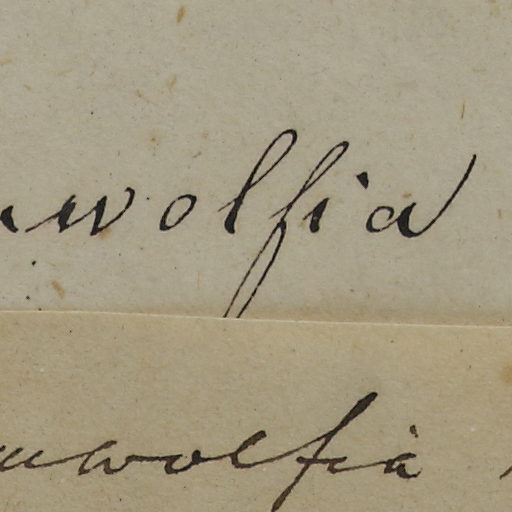 uwolfia
uwolfia